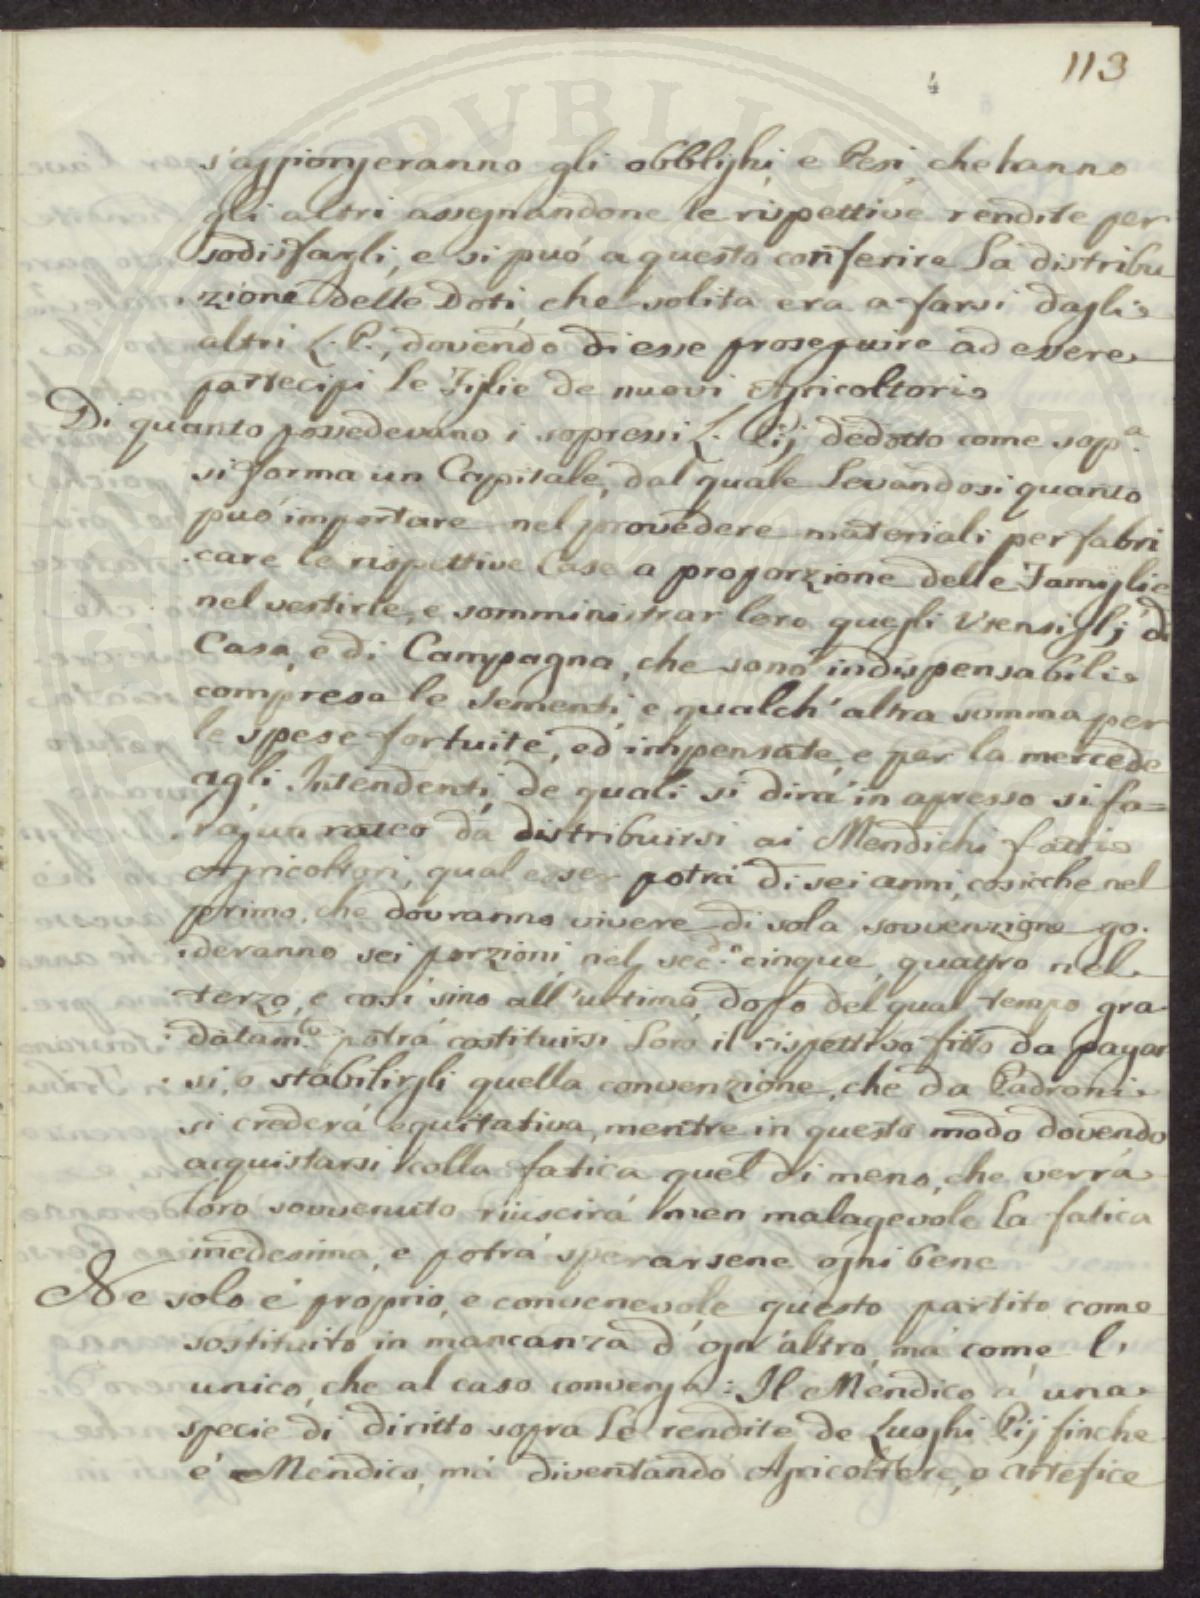 113
4
s'aggiongeranno gli obblighi, e Pesi, che hanno
gli altri assegnandone le rispettive rendite per
sodisfargli, e si può a questo conferire la distribu
zione delle Doti, che solita era a farsi dagli
altri L. P., dovendo di esse proseguire ad essere
partecipi le Figlie de nuovi Agricoltori
Di quanto possedevano i sopressi L. Pij dedotto come sop.a
si forma un Capitale, dal quale levandosi quanto
può importare nel provedere materiali per fabri
care le rispettive Case a proporzione delle Famiglie
nel vestirle, e somministrar loro quegli Vtensiglj di
Casa, e di Campagna, che sono indispensabili
comprese le sementi, e qualch'altra somma per
le spese fortuite, ed impensate, e per la mercede
agli Intendenti, de quali si dirà in apresso si fa=
rà, un rateo da distribuirsi ai Mendichi fatti
Agricoltori, qual esser potrà di sei anni, cosicche nel
primo, che dovranno vivere di sola sovvenzione go
deranno sei porzioni, nel sec.do cinque, quattro nel
terzo, e così sino all'ultimo, dopo del qual tempo gra
datam.te potrà costituirsi loro il rispettivo fitto da pagar
si, o stabilirgli quella convenzione, che da Padroni
si crederà equitativa, mentre in questo modo dovendo
acquistarsi colla fatica quel di meno, che verrà
loro sovvenuto riuscirà men malagevole la fatica
medesima, e potrà sperarsene ogni bene
Ne solo è proprio, e convenevole questo partito come
sostituito in mancanza d'ogn'altro, mà come l'
unico, che al caso convenga: Il Mendico à una
specie di diritto sopra le rendite de Luoghi Pij finche
è Mendico, mà diventando Agricoltore, o artefice